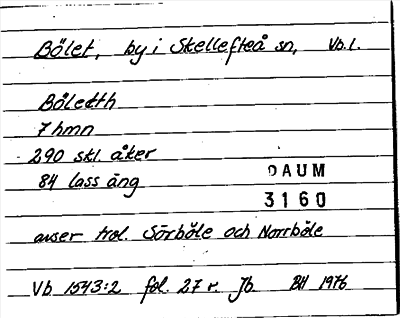 Bölet, by i Skellefteå sn, Vb.l.
Böleth
7 hmn
290 skl. åker
84 lass äng
DAUM
3160
avser trol. Sörböle och Norrböle
Vb 1543:2 fol. 27 r. Jb BH 1976